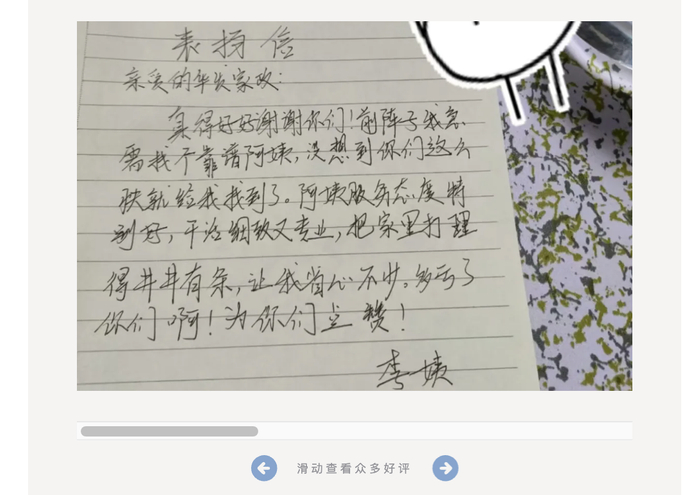 表扬信
亲爱的华发家政：
真得好好谢谢你们！前阵子我急
需找个靠谱阿姨，没想到你们这么
快就给我找到了。阿姨服务态度特
别好，干活细致又专业，把家里打理
得井井有条，让我省心不少。多亏了
你们啊！为你们点赞！
李姨
滑动查看众多好评